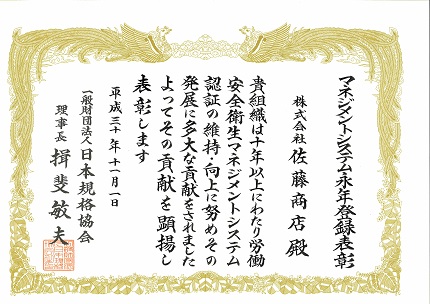 マネジメントシステム永年登録表彰
株式会社 佐藤商店 殿
貴組織は十年以上にわたり労働
安全衛生マネジメントシステム
認証の維持・向上に努めその
発展に多大な貢献をされました
よってその貢献を顕揚し
表彰します
平成三十年十一月一日
一般財団法人 日本規格協会
理事長 揖斐敏夫